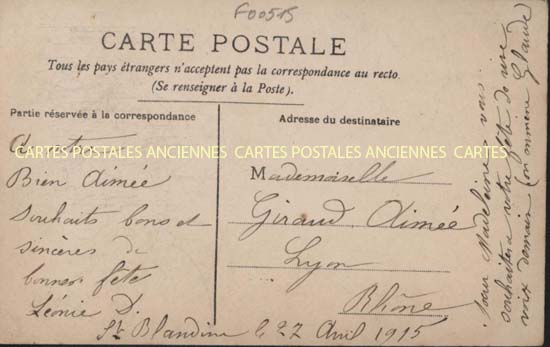 F00515
CARTE POSTALE
Tous les pays étrangers n'acceptent pas la correspondance au recto.
(Se renseigner à la Poste).
Partie réservée à la correspondance
Adresse du destinataire
CARTES POSTALES ANCIENNES CARTES POSTALES ANCIENNES CARTES
Bien Aimée
Souhaits bons et
sincères de
bonne fête
Léonie D.
St Blandine le 27 Avril 1915
Mademoiselle
Giraud Aimée
Lyon
Rhône
pour Madeleine vous
souhaiter votre fête de vive
voix demain Claude